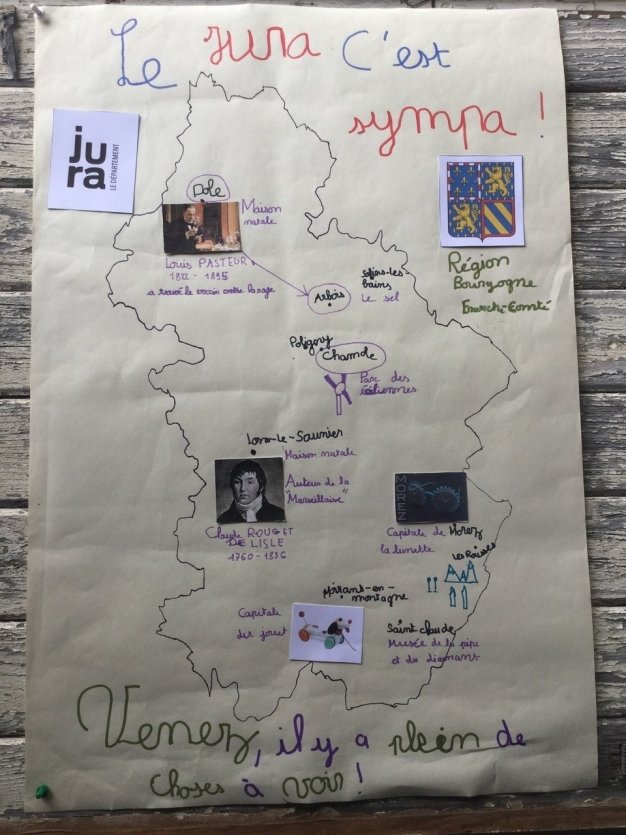 Le Jura C'est
sympa !
jura
LE DÉPARTEMENT
Dole
Maison
natale
Louis PASTEUR
1822 - 1895
a trouvé le vaccin contre la rage
Région
Bourgogne
Franche-Comté
Salins-les
bains
Le sel
Arbois
Poligny
Chamole
Parc des
éoliennes
Lons-le-Saunier
Maison natale
Auteur de la
"Marseillaise"
Claude ROUGET
DE LISLE
1760 - 1836
MOREZ
Capitale de Morez
la lunette
Les Rousses
Moirans-en-
montagne
Capitale
des jouet
Saint claude
Musée de la pipe
et du diamant
Venez, il y a plein de
choses à voir !